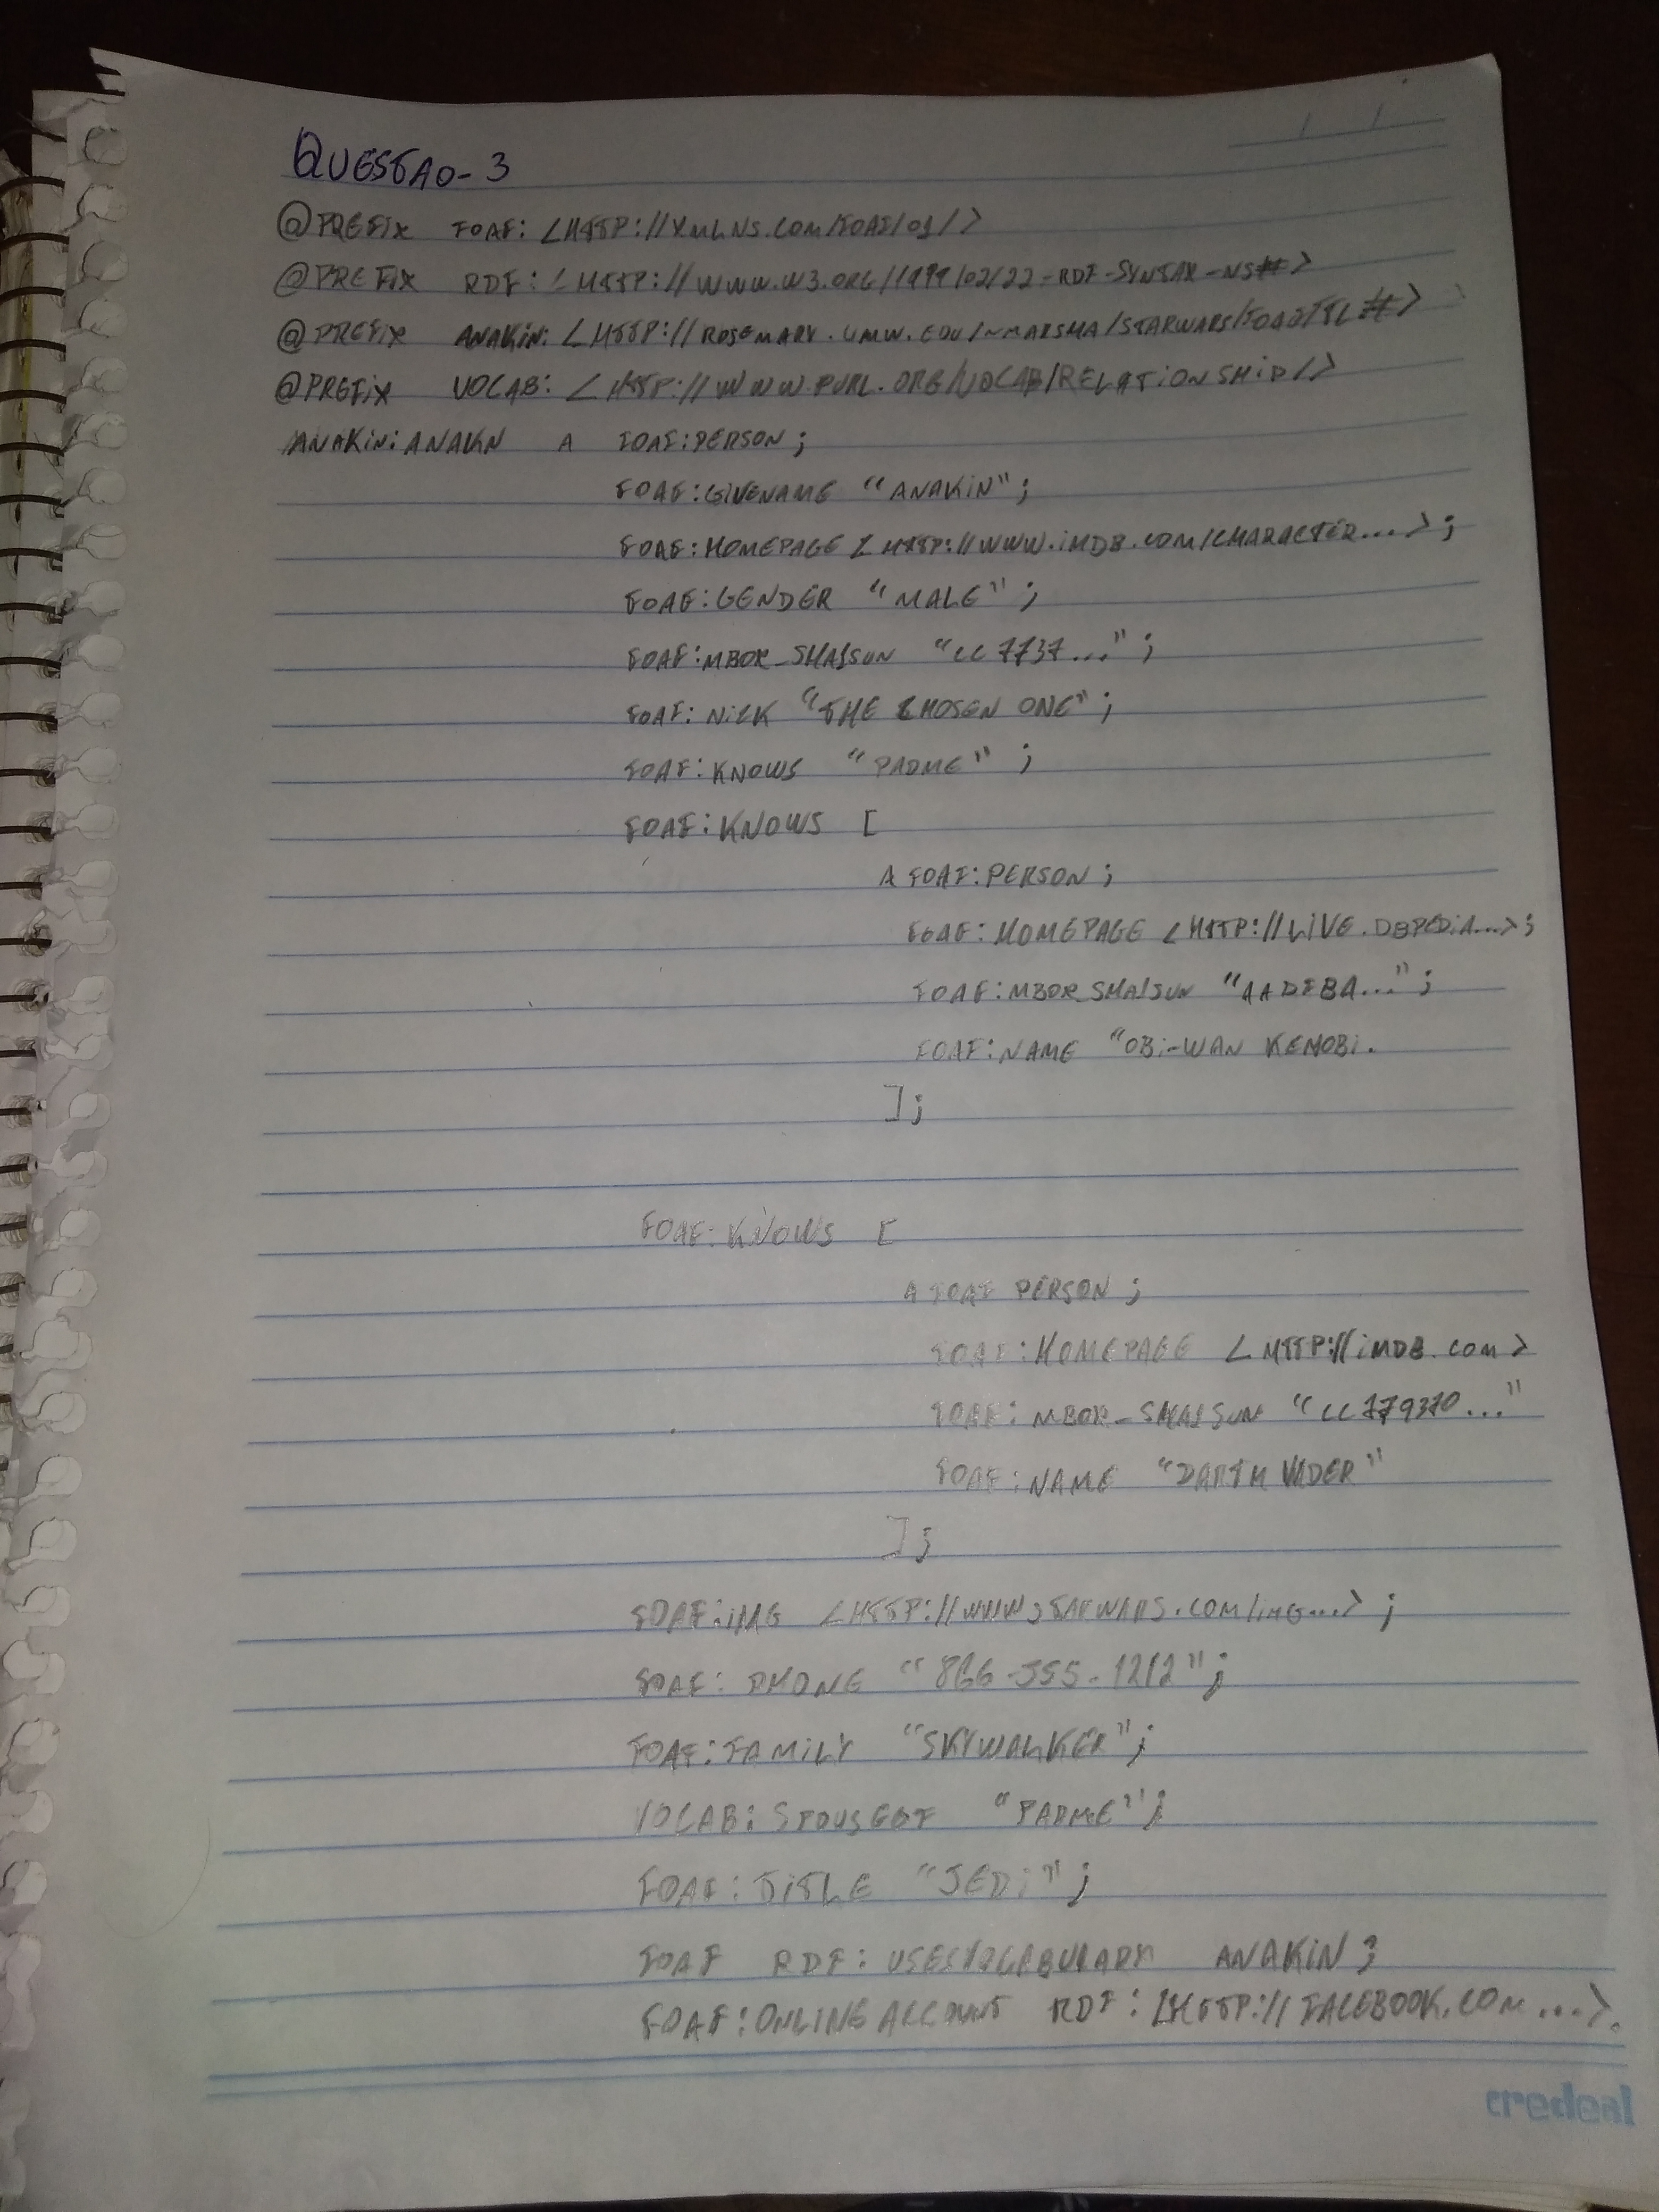 QUESTAO- 3
@PREFIX FOAF: <HTTP://XMLNS.COM/FOAF/01/>
@PREFIX RDF: <HTTP://WWW.W3.ORG/1999/02/22-RDF-SYNTAX-NS#>
@PREFIX ANAKIN: <HTTP://ROSEMARY.UMW.EDU/~MARSHA/STARWARS/FOAF/TTL#>
@PREFIX VOCAB: <HTTP://WWW.PURL.ORG/VOCAB/RELATIONSHIP/>
ANAKIN:ANAKN A FOAF:PERSON;
FOAF:GIVENAME "ANAKIN";
FOAF:HOMEPAGE <HTTP://WWW.IMDB.COM/CHARACTER...>;
FOAF:GENDER "MALE";
FOAF:MBOX_SHA1SUN "CC7737...";
FOAF:NICK "THE CHOSEN ONE";
FOAF:KNOWS "PADME";
FOAF:KNOWS [
A FOAF:PERSON;
FOAF:HOMEPAGE <HTTP://LIVE.DBPEDIA...>;
FOAF:MBOX_SHA1SUN "AADFBA...";
FOAF:NAME "OBI-WAN KENOBI.
];
FOAF:KNOWS [
A FOAF PERSON;
FOAF:HOMEPAGE <HTTP://IMDB.COM>
FOAF:MBOX_SHA1SUN "CC779370..."
FOAF:NAME "DARTH VADER"
];
FOAF:IMG <HTTP://WWW.STARWARS.COM/IMG...>;
FOAF:PHONE "866-555-1212";
FOAF:FAMILY "SKYWALKER";
VOCAB:SPOUSEOF "PADME";
FOAF:TITLE "JEDI";
FOAF RDF: ANAKIN;
FOAF:ONLINE ACCOUNT RDF:<HTTP://FACEBOOK.COM...>.
credeal